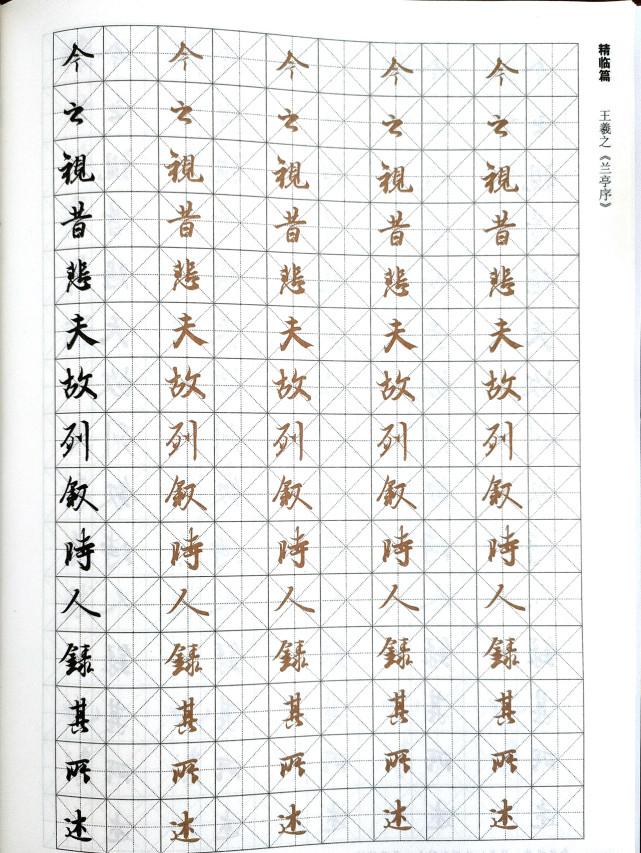 精临篇
王羲之《兰亭序》
今之視昔悲夫故列叙時人録其所述
今之視昔悲夫故列叙時人録其所述
今之視昔悲夫故列叙時人録其所述
今之視昔悲夫故列叙時人録其所述
今之視昔悲夫故列叙時人録其所述